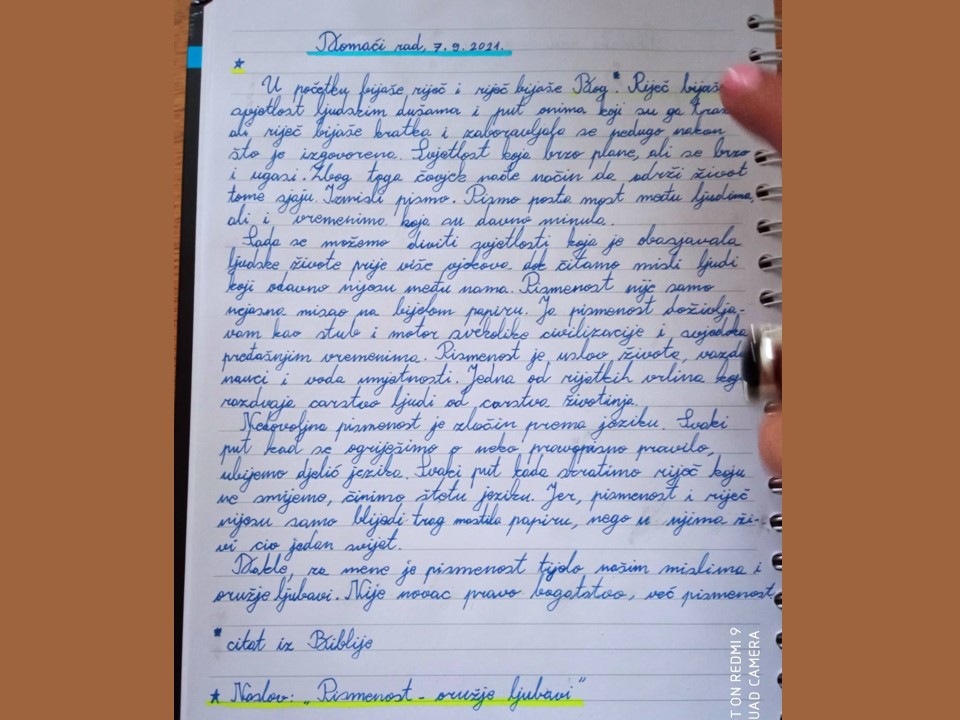 Domaći rad, 7.9.2021.
*
U početku bijaše riječ i riječ bijaše Bog.* Riječ bijaše
svjetlost ljudskim dušama i put onima koji su ga
ali riječ bijaše kratka i zaboravljala se nedugo nakon
što je izgovorena. Svjetlost koja brzo plane, ali se brzo
i ugasi. Zbog toga čovjek nađe način da održi život
tome sjaju. Izmisli pismo. Pismo posta most među ljudima,
ali i vremenima koja su davno minula.
Sada se možemo diviti svjetlosti koja je obasjavala
ljudske živote prije više vjekova dok čitamo misli ljudi
koji odavno nijesu među nama. Pismenost nije samo
nejasna misao na bijelom papiru. Ja pismenost doživlja-
vam kao stub i motor svekolike civilizacije i svjedoka
pređašnjim vremenima. Pismenost je uslov života,
nauci i voda umjetnosti. Jedna od rijetkih vrlina
razdvaja carstvo ljudi od carstva životinja.
Nedovoljna pismenost je zločin prema jeziku. Svaki
put kad se ogriješimo o neko pravopisno pravilo,
ubijemo djelić jezika. Svaki put kada skratimo riječ koju
ne smijemo, činimo štetu jeziku. Jer, pismenost i riječ
nijesu samo blijedi trag mastila papiru, nego u njima ži-
vi cio jedan svijet.
Dakle, za mene je pismenost tijelo našim mislima i
oružje ljubavi. Nije novac pravo bogatstvo, već pismenost
* citat iz Biblije
* Naslov: „Pismenost - oružje ljubavi"
T ON REDMI 9
UAD CAMERA